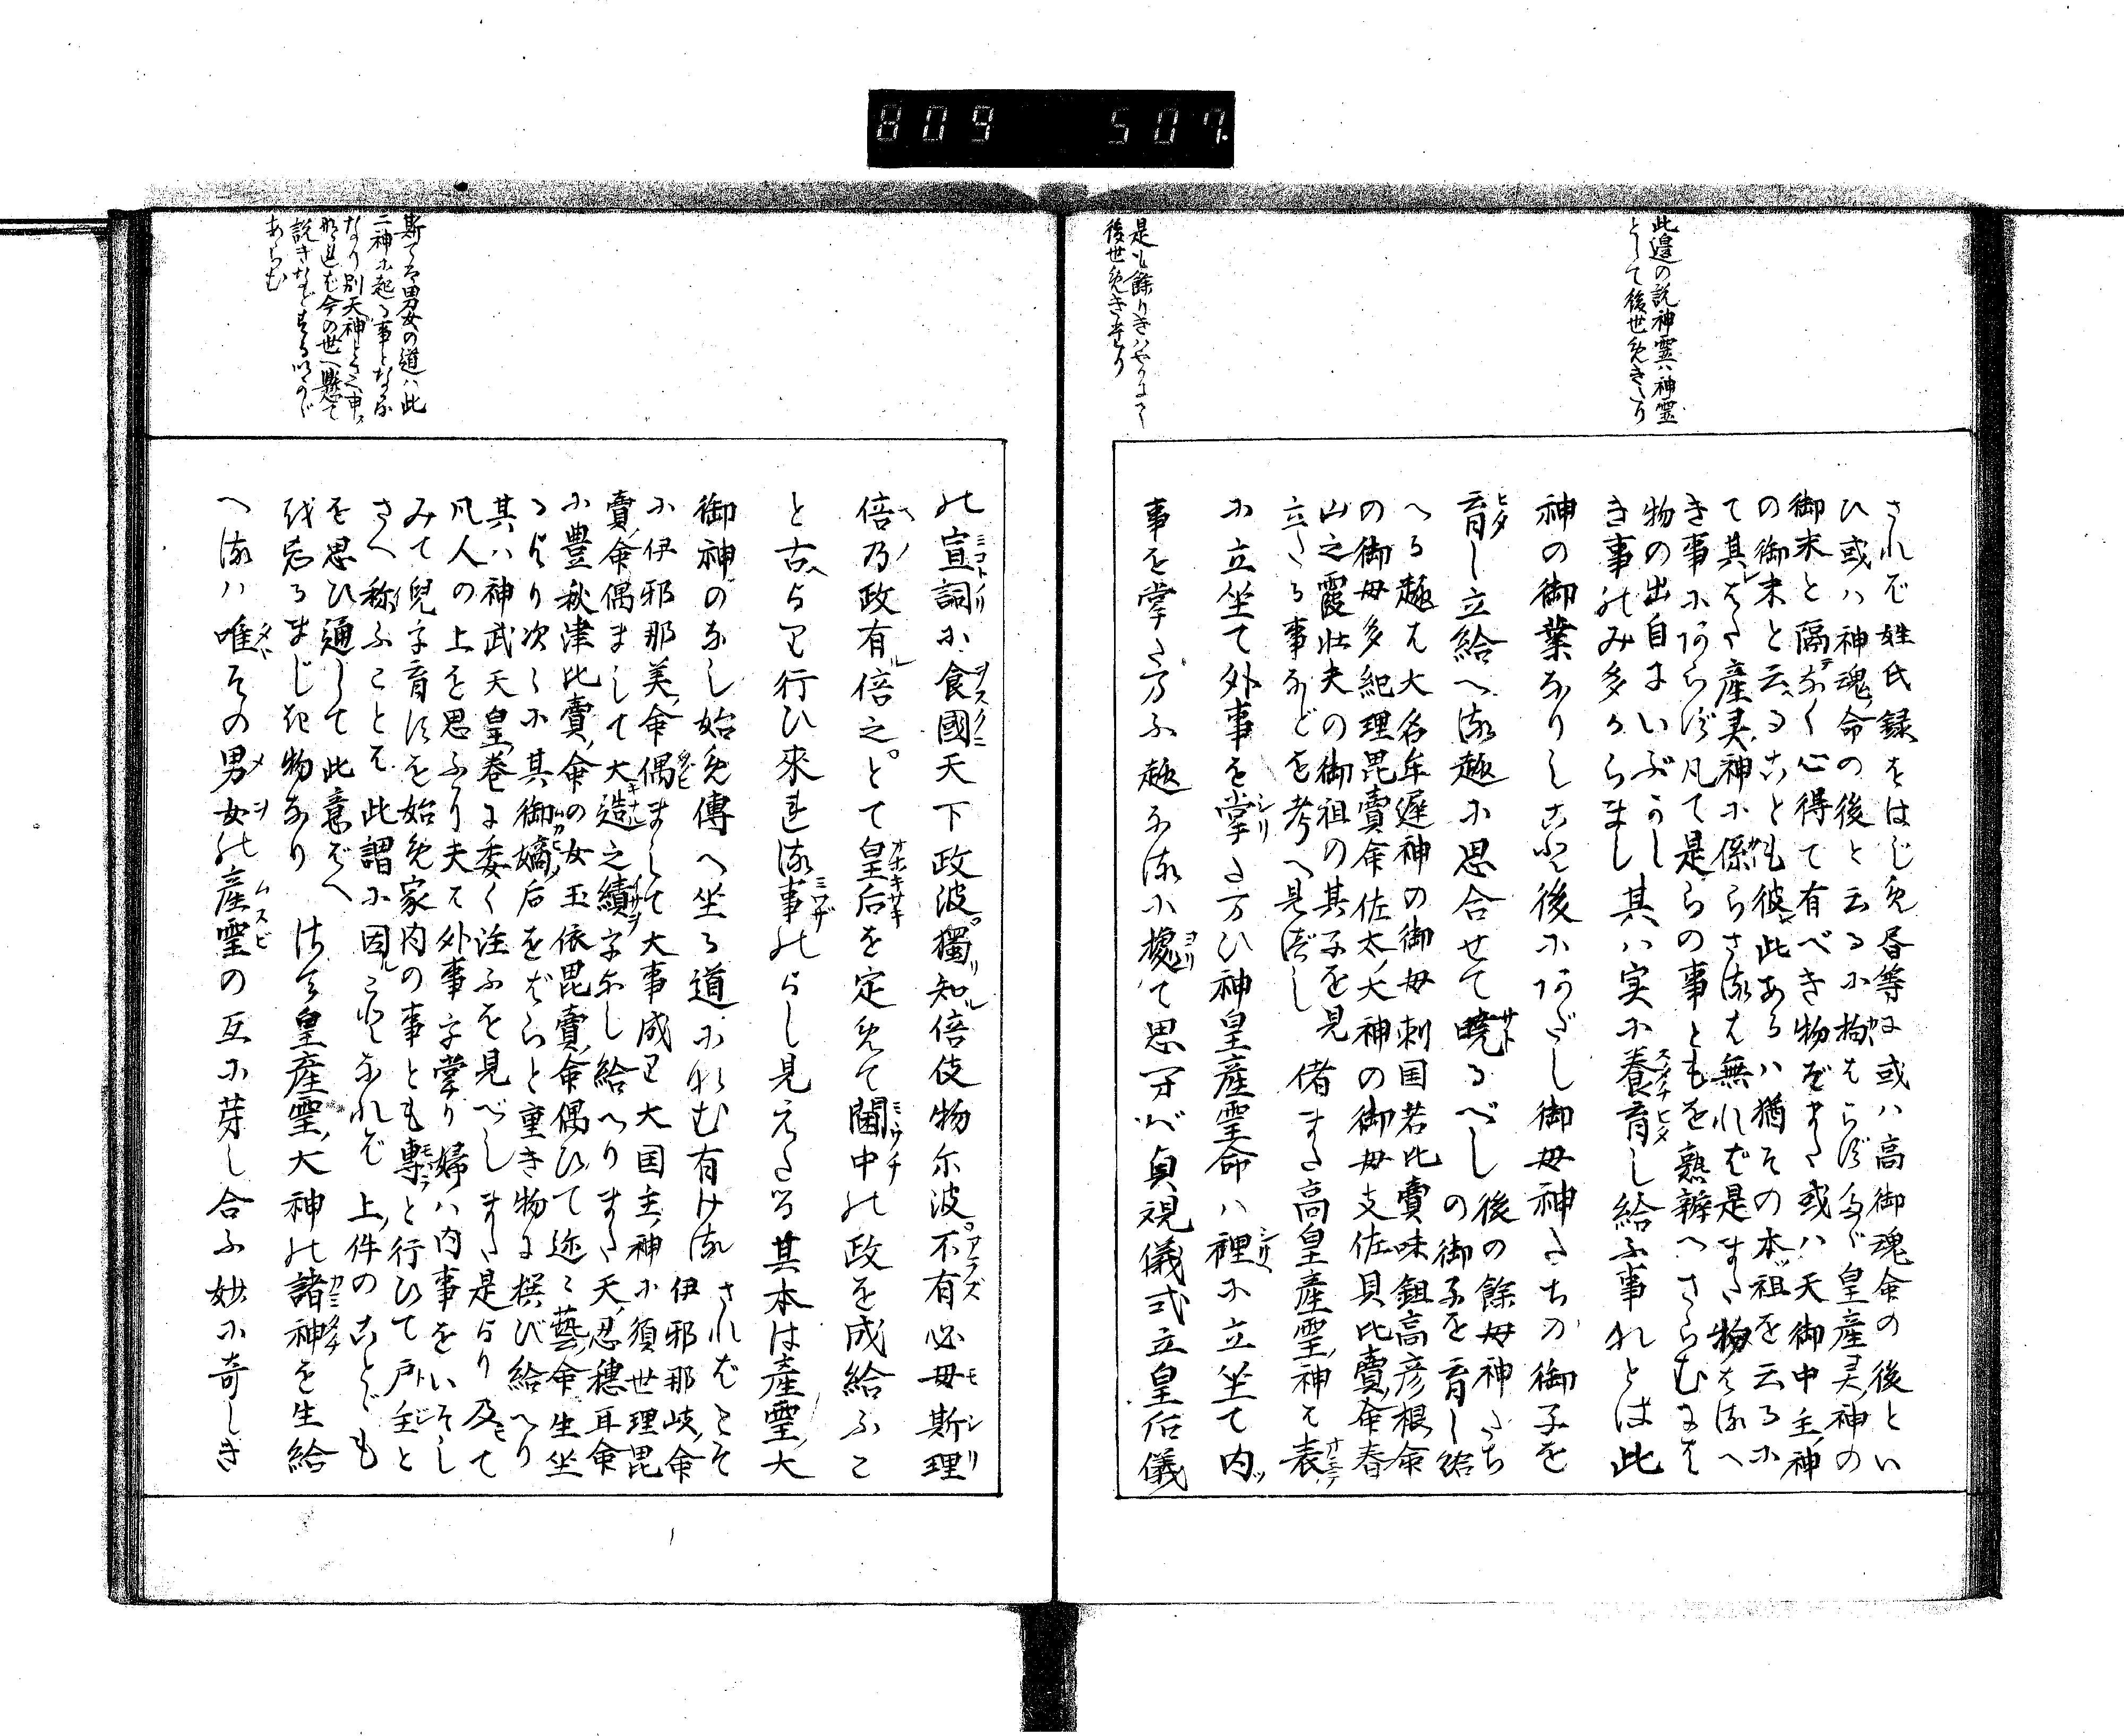 809 507
此邉の説神霊ハ神霊
として後世めきたり
是も餘りきハやかにて
後世めきたり
されば姓氏録をはじめ書等に或ハ高御魂命の後とい
ひ或ハ神魂命の後と云るに拘はらず多が皇産灵神の
御末と隔なく心得て有べき物ぞまた或ハ天御中主神
の御末と云ることも彼此あるハ猶その本祖を云るに
て其はた産灵神に係らさるは無れば是また物はるへ
き事にあらず凡て是らの事ともを熟辨へさらむには
物の出自にいぶかし
き事のみ多からまし其ハ実に養育し給ふ事れとは此
神の御業なりしなど後にあがし御母神たちの御子を
育し立給へる趣に思合せて曉るべし後の餘母神たち
の御子を育し給
へる趣は大名牟遲神の御母刺国若比賣味鉏高彦根命
の御母多紀理毘賣命佐太大神の御母支佐貝比賣命春
山之霞壮夫の御祖の其子を見
立たる事などを考へ見べし偖また高皇産霊神は表
に立坐て外事を掌たまひ神皇産霊命ハ裡に立坐て内
事を掌たまふ趣なるに據て思ふべし貞観儀式立皇后儀
の宣詞に食國天下政波獨知倍伎物尓波不有必母斯理
倍乃政有倍之とて皇后を定めて閫中の政を成給ふこ
と古より行ひ來れる事のよし見えたるも其本は産霊大
御神のなし始め傳へ坐る道になむ有けるさればこそ
伊邪那岐命
に伊邪那美命偶まして大事成り大国主神に須世理毘
賣命偶まして大造之績を成し給へりまた天忍穂耳命
に豊秋津比賣命の女玉依毘賣命偶ひて迩々藝命生坐
るより次々に其御嫡后をばらと重き物に撰び給へり
其ハ神武天皇巻に委く注ふを見べしまた是より及て
凡人の上を思ふより夫は外事を掌り婦ハ内事をいそし
みて兒を育るを始め家内の事とも專と行ひて戸主と
さへ称ふことは此謂に因ことなれば上件のことども
を思ひ通して此意ばへ
を忘るまじき物なりはた皇産霊大神の諸神を生給
へるハ唯その男女の産霊の互に芽し合ふ妙に奇しき
斯てハ男女の道ハ此
二神に起る事となる
なり別天神とさへ申ス
那ればを今の世へ懸て
説きなどする以のが
あらむ